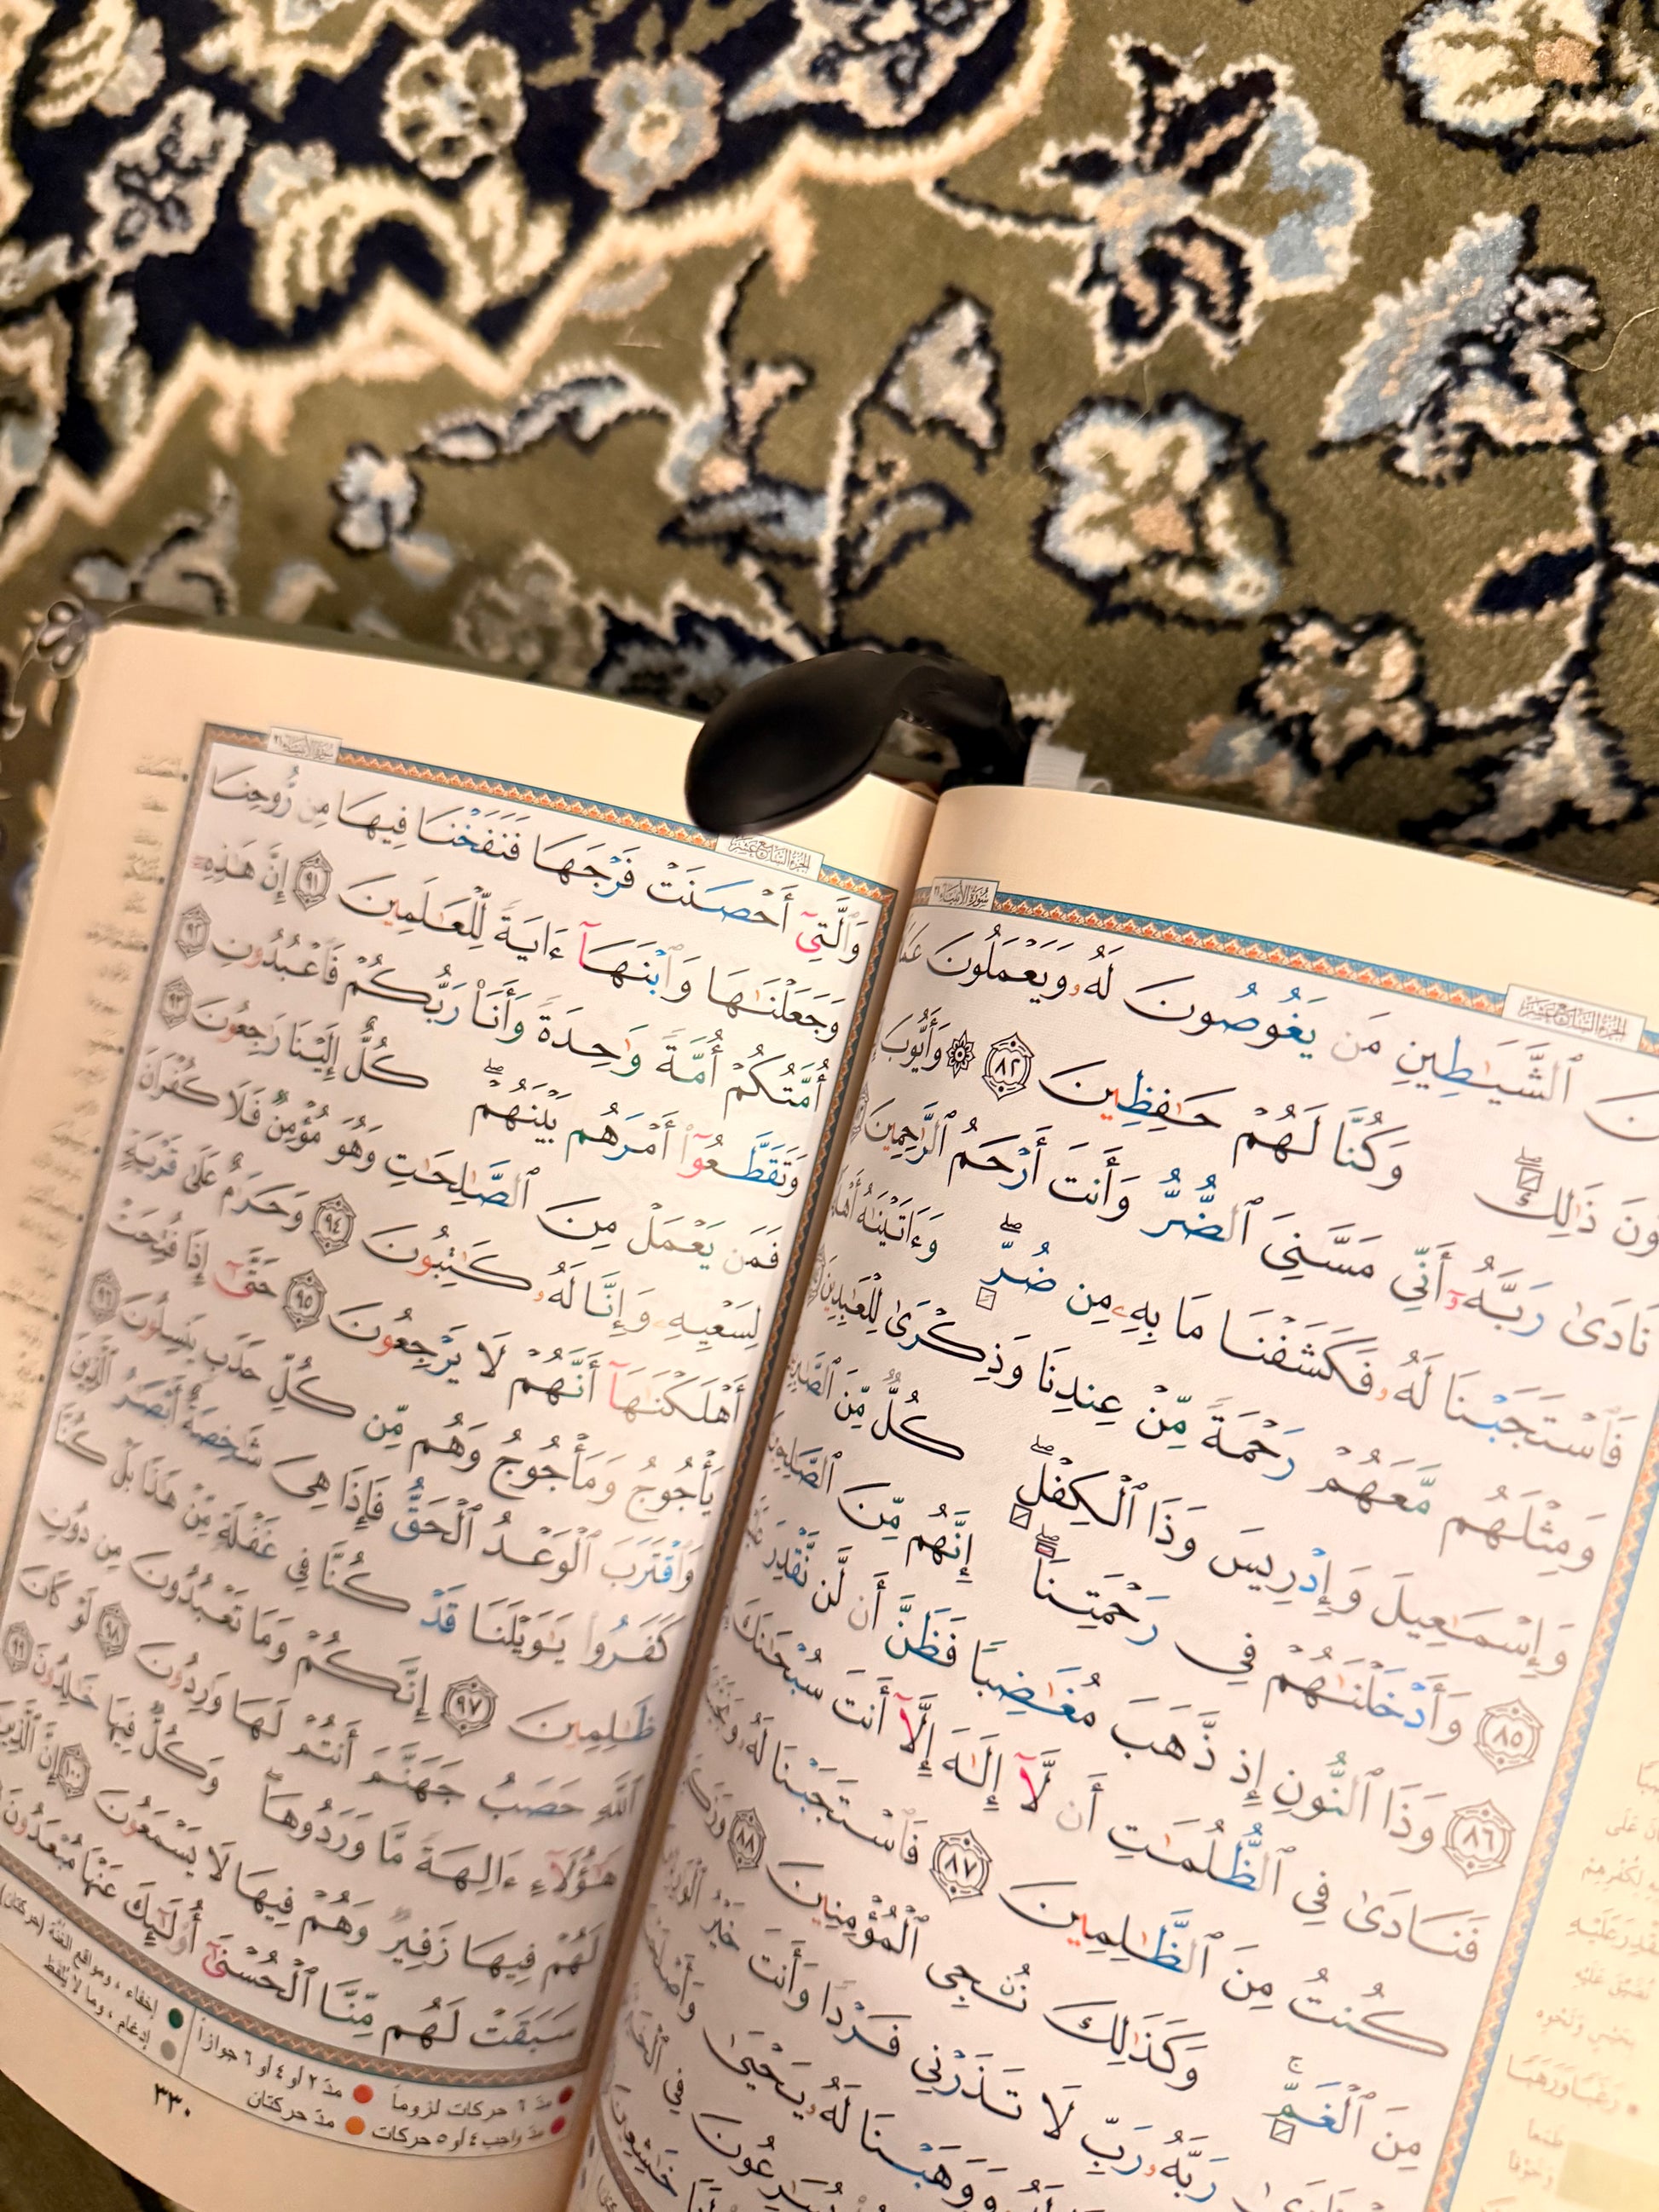 سورة الأنبياء ٢١
الجزء السابع عشر
ٱلشَّيَـٰطِينِ مَن يَغُوصُونَ لَهُۥ وَيَعْمَلُونَ
ونَ ذَٰلِكَ ۖ وَكُنَّا لَهُمْ حَـٰفِظِينَ ٨٢ ۞ وَأَيُّوبَ
نَادَىٰ رَبَّهُۥٓ أَنِّى مَسَّنِىَ ٱلضُّرُّ وَأَنتَ أَرْحَمُ ٱلرَّٰحِمِينَ
فَٱسْتَجَبْنَا لَهُۥ فَكَشَفْنَا مَا بِهِۦ مِن ضُرٍّ ۖ وَءَاتَيْنَـٰهُ
وَمِثْلَهُم مَّعَهُمْ رَحْمَةً مِّنْ عِندِنَا وَذِكْرَىٰ لِلْعَـٰبِدِينَ
وَإِسْمَـٰعِيلَ وَإِدْرِيسَ وَذَا ٱلْكِفْلِ ۖ كُلٌّ مِّنَ
٨٥ وَأَدْخَلْنَـٰهُمْ فِى رَحْمَتِنَآ ۖ إِنَّهُم مِّنَ
٨٦ وَذَا ٱلنُّونِ إِذ ذَّهَبَ مُغَـٰضِبًا فَظَنَّ أَن لَّن نَّقْدِرَ
فَنَادَىٰ فِى ٱلظُّلُمَـٰتِ أَن لَّآ إِلَـٰهَ إِلَّآ أَنتَ سُبْحَـٰنَكَ
كُنتُ مِنَ ٱلظَّـٰلِمِينَ ٨٧ فَٱسْتَجَبْنَا لَهُۥ
مِنَ ٱلْغَمِّ ۚ وَكَذَٰلِكَ نُـۨجِى ٱلْمُؤْمِنِينَ ٨٨
رَبَّهُۥ رَبِّ لَا تَذَرْنِى فَرْدًا وَأَنتَ خَيْرُ
وَوَهَبْنَا لَهُۥ يَحْيَىٰ
سورة الأنبياء ٢١
الجزء السابع عشر
وَٱلَّتِىٓ أَحْصَنَتْ فَرْجَهَا فَنَفَخْنَا فِيهَا مِن رُّوحِنَا
وَجَعَلْنَـٰهَا وَٱبْنَهَآ ءَايَةً لِّلْعَـٰلَمِينَ ٩١ إِنَّ هَـٰذِهِۦٓ
أُمَّتُكُمْ أُمَّةً وَٰحِدَةً وَأَنَا۠ رَبُّكُمْ فَٱعْبُدُونِ ٩٢
وَتَقَطَّعُوٓا۟ أَمْرَهُم بَيْنَهُمْ ۖ كُلٌّ إِلَيْنَا رَٰجِعُونَ ٩٣
فَمَن يَعْمَلْ مِنَ ٱلصَّـٰلِحَـٰتِ وَهُوَ مُؤْمِنٌ فَلَا كُفْرَانَ
لِسَعْيِهِۦ وَإِنَّا لَهُۥ كَـٰتِبُونَ ٩٤ وَحَرَٰمٌ عَلَىٰ قَرْيَةٍ
أَهْلَكْنَـٰهَآ أَنَّهُمْ لَا يَرْجِعُونَ ٩٥ حَتَّىٰٓ إِذَا فُتِحَتْ
يَأْجُوجُ وَمَأْجُوجُ وَهُم مِّن كُلِّ حَدَبٍ يَنسِلُونَ ٩٦
وَٱقْتَرَبَ ٱلْوَعْدُ ٱلْحَقُّ فَإِذَا هِىَ شَـٰخِصَةٌ أَبْصَـٰرُ ٱلَّذِينَ
كَفَرُوا۟ يَـٰوَيْلَنَا قَدْ كُنَّا فِى غَفْلَةٍ مِّنْ هَـٰذَا بَلْ كُنَّا
ظَـٰلِمِينَ ٩٧ إِنَّكُمْ وَمَا تَعْبُدُونَ مِن دُونِ
ٱللَّهِ حَصَبُ جَهَنَّمَ أَنتُمْ لَهَا وَٰرِدُونَ ٩٨ لَوْ كَانَ
هَـٰٓؤُلَآءِ ءَالِهَةً مَّا وَرَدُوهَا ۖ وَكُلٌّ فِيهَا خَـٰلِدُونَ ٩٩
لَهُمْ فِيهَا زَفِيرٌ وَهُمْ فِيهَا لَا يَسْمَعُونَ ١٠٠ إِنَّ ٱلَّذِينَ
سَبَقَتْ لَهُم مِّنَّا ٱلْحُسْنَىٰٓ أُو۟لَـٰٓئِكَ عَنْهَا مُبْعَدُونَ
مدّ ٦ حركات لزوماً مدّ ٢ أو ٤ أو ٦ جوازاً إخفاء ، ومواقع الغنّة (حركتان)
مدّ واجب ٤ أو ٥ حركات مدّ حركتان إدغام ، وما لا يُلفظ
٣٣٠